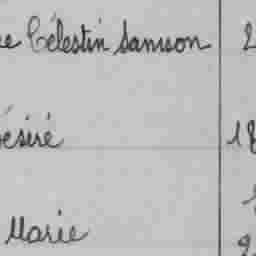 Célestin Samson 2
ésiré 18
Marie